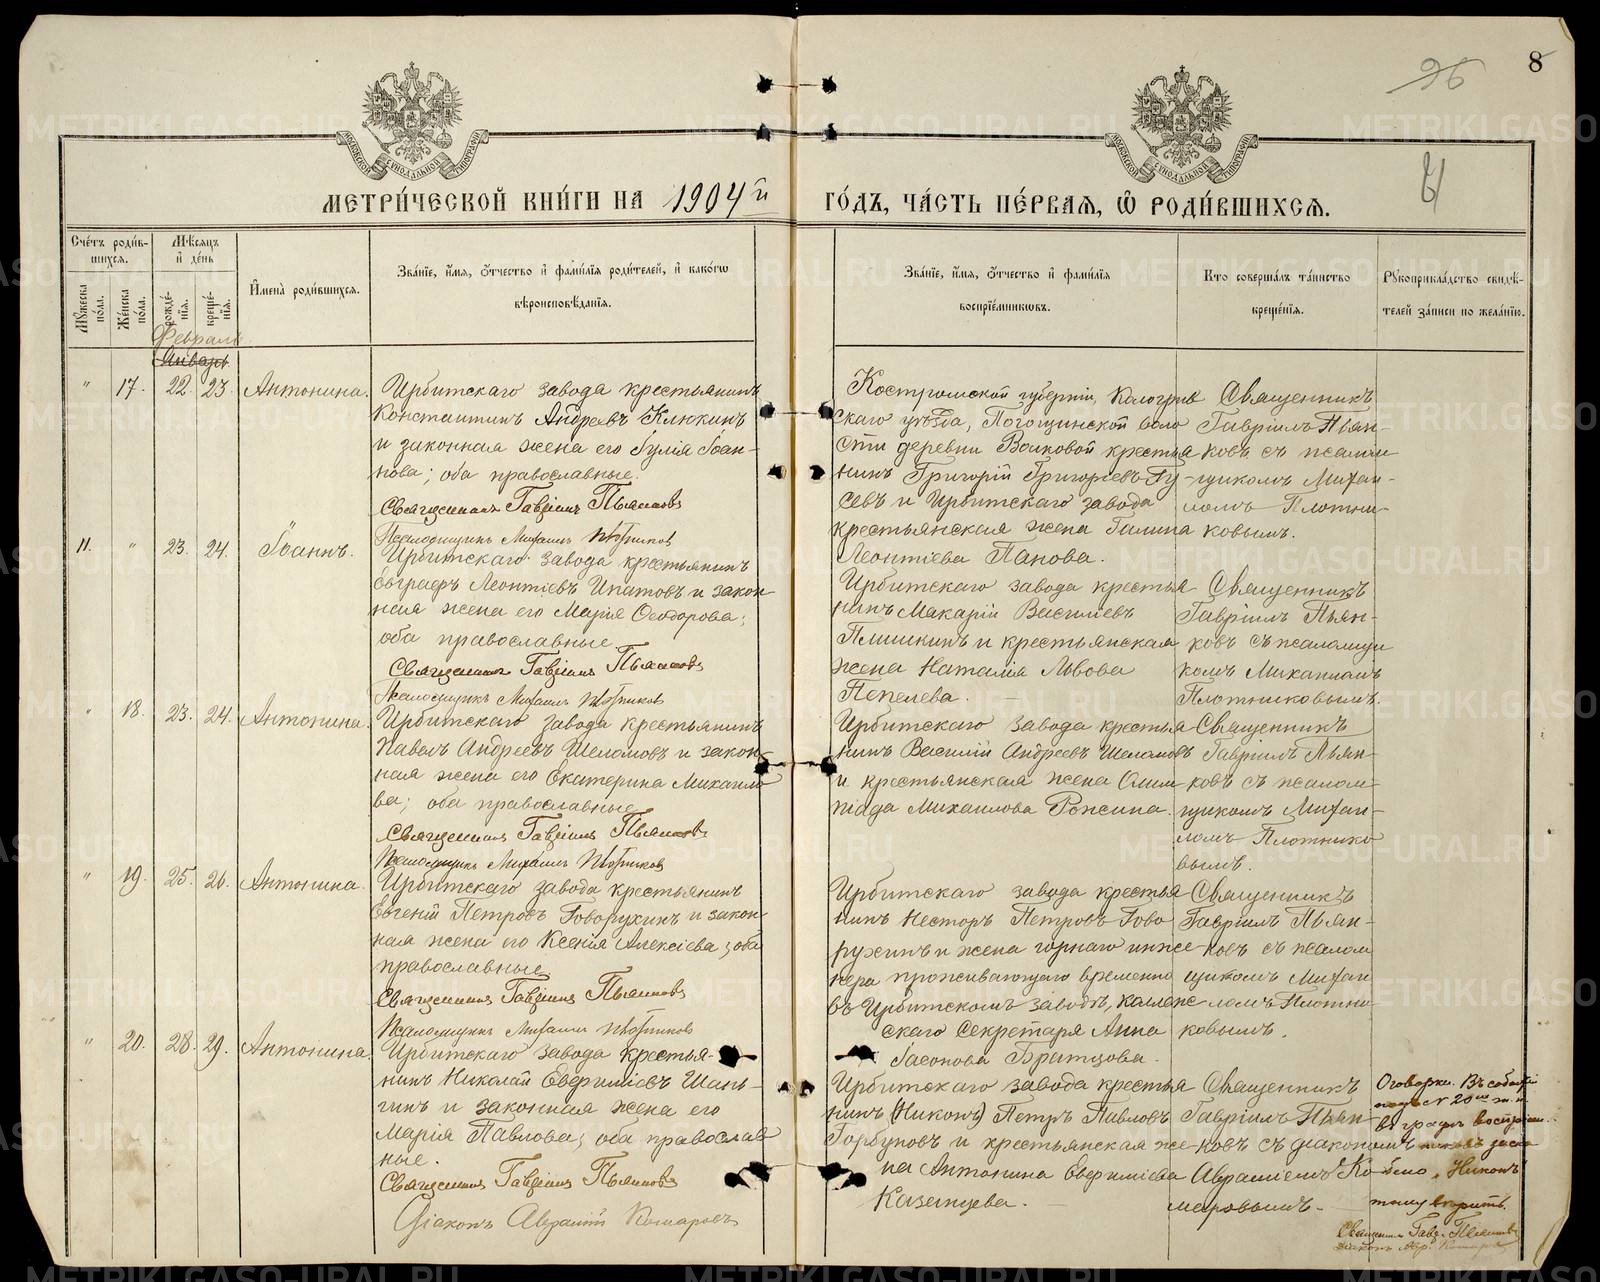 96
8
МЕТРИ́ЧЕСКОЙ КНИ́ГИ НА 1904 й ГО́ДЪ, ЧА́СТЬ ПЕ́РВАЯ, Ѡ҆ РОДИ́ВШИХСЯ.
Сче́тъ роди́в-
шихся.
Мꙋжеска по́ла.
Же́нска по́ла.
Мѣ́сяцъ и҆ де́нь
рожде́-
нїя.
креще́-
нїя.
И҆мена̀ роди́вшихся.
Зва́нїе, и҆́мя, ѻ҆́тчество и҆ фами́лїя роди́телей, и҆ како́гѡ
вѣроисповѣ́данїя.
Зва́нїе, и҆́мя, ѻ҆́тчество и҆ фами́лїя
воспрїе́мниковъ.
Кто̀ соверша́лъ та́инство
креще́нїя.
Рꙋкоприкла́дство свидѣ́-
телей за́писи по жела́нїю.
Февраль
Январь
" 17. 22. 23. Антонина.
Ирбитскаго завода крестьянинъ
Константинъ Андреевъ Клюкинъ
и законная жена его Іулія Іоан-
нова; оба православные.
Священникъ Гавріилъ Пьянковъ
Псаломщикъ Михаилъ Плотников
Костромской губерніи, Кологрив
скаго уѣзда, Погощинской воло
сти деревни Волковой крестья
нинъ Григорій Григорьевъ Гу-
севъ и Ирбитскаго завода
крестьянская жена Галина
Леонтіева Панова.
Священникъ
Гавріилъ Пьян-
ковъ съ псалом
щикомъ Михаи-
ломъ Плотни-
ковымъ.
11. " 23. 24. Іоаннъ.
Ирбитскаго завода крестьянинъ
Евграфъ Леонтіевъ Ипатовъ и закон
ная жена его Марія Ѳеодорова;
оба православные
Священникъ Гавріилъ Пьянковъ
Псаломщикъ Михаилъ Плотников
Ирбитскаго завода крестья
нинъ Макарій Василіевъ
Плишкинъ и крестьянская
жена Наталія Львова
Пепелева.
Священникъ
Гавріилъ Пьян-
ковъ съ псаломщи
комъ Михаиломъ
Плотниковымъ.
" 18. 23. 24. Антонина.
Ирбитскаго завода крестьянинъ
Павелъ Андреевъ Шеломовъ и закон
ная жена его Екатерина Михаило
ва; оба православные
Священникъ Гавріилъ Пьянковъ
Псаломщикъ Михаилъ Плотников
Ирбитскаго завода крестья
нинъ Василій Андреевъ Шеломовъ
и крестьянская жена Олим
піада Михаилова Ронсина.
Священникъ
Гавріилъ Пьян-
ковъ съ псалом-
щикомъ Михаи-
ломъ Плотнико
вымъ.
" 19. 25. 26. Антонина.
Ирбитскаго завода крестьянинъ
Евгеній Петровъ Говорухинъ и закон
ная жена его Ксенія Алексіева; оба
православные
Священникъ Гавріилъ Пьянковъ
Псаломщикъ Михаилъ Плотников
Ирбитскаго завода крестья
нинъ Несторъ Петровъ Гово
рухинъ и жена горнаго инже
нера проживающаго временно
въ Ирбитскомъ заводѣ, коллеж
скаго Секретаря Анна
Іасонова Бритцова.
Священникъ
Гавріилъ Пьян-
ковъ съ псалом
щикомъ Михаи
ломъ Плотни
ковымъ.
" 20. 28. 29. Антонина.
Ирбитскаго завода крестья-
нинъ Николай Евфиміевъ Шань-
гинъ и законная жена его
Марія Павлова; оба православ
ные.
Священникъ Гавріилъ Пьянковъ
Діаконъ Авраамій Комаровъ
Ирбитскаго завода крестья
нинъ (Никонъ) Петръ Павловъ
Горбуновъ и крестьянская же-
на Антонина Евфиміева
Казанцева.
Священникъ
Гавріилъ Пьян-
ковъ съ діакономъ
Авраміемъ Ко-
маровымъ.
Оговорка. Въ событіи
подъ № 20
въ графѣ воспріем.
"Никонъ"
тому вѣрить.
Священник Гавр. Пьянковъ
Діаконъ Авр. Комаровъ